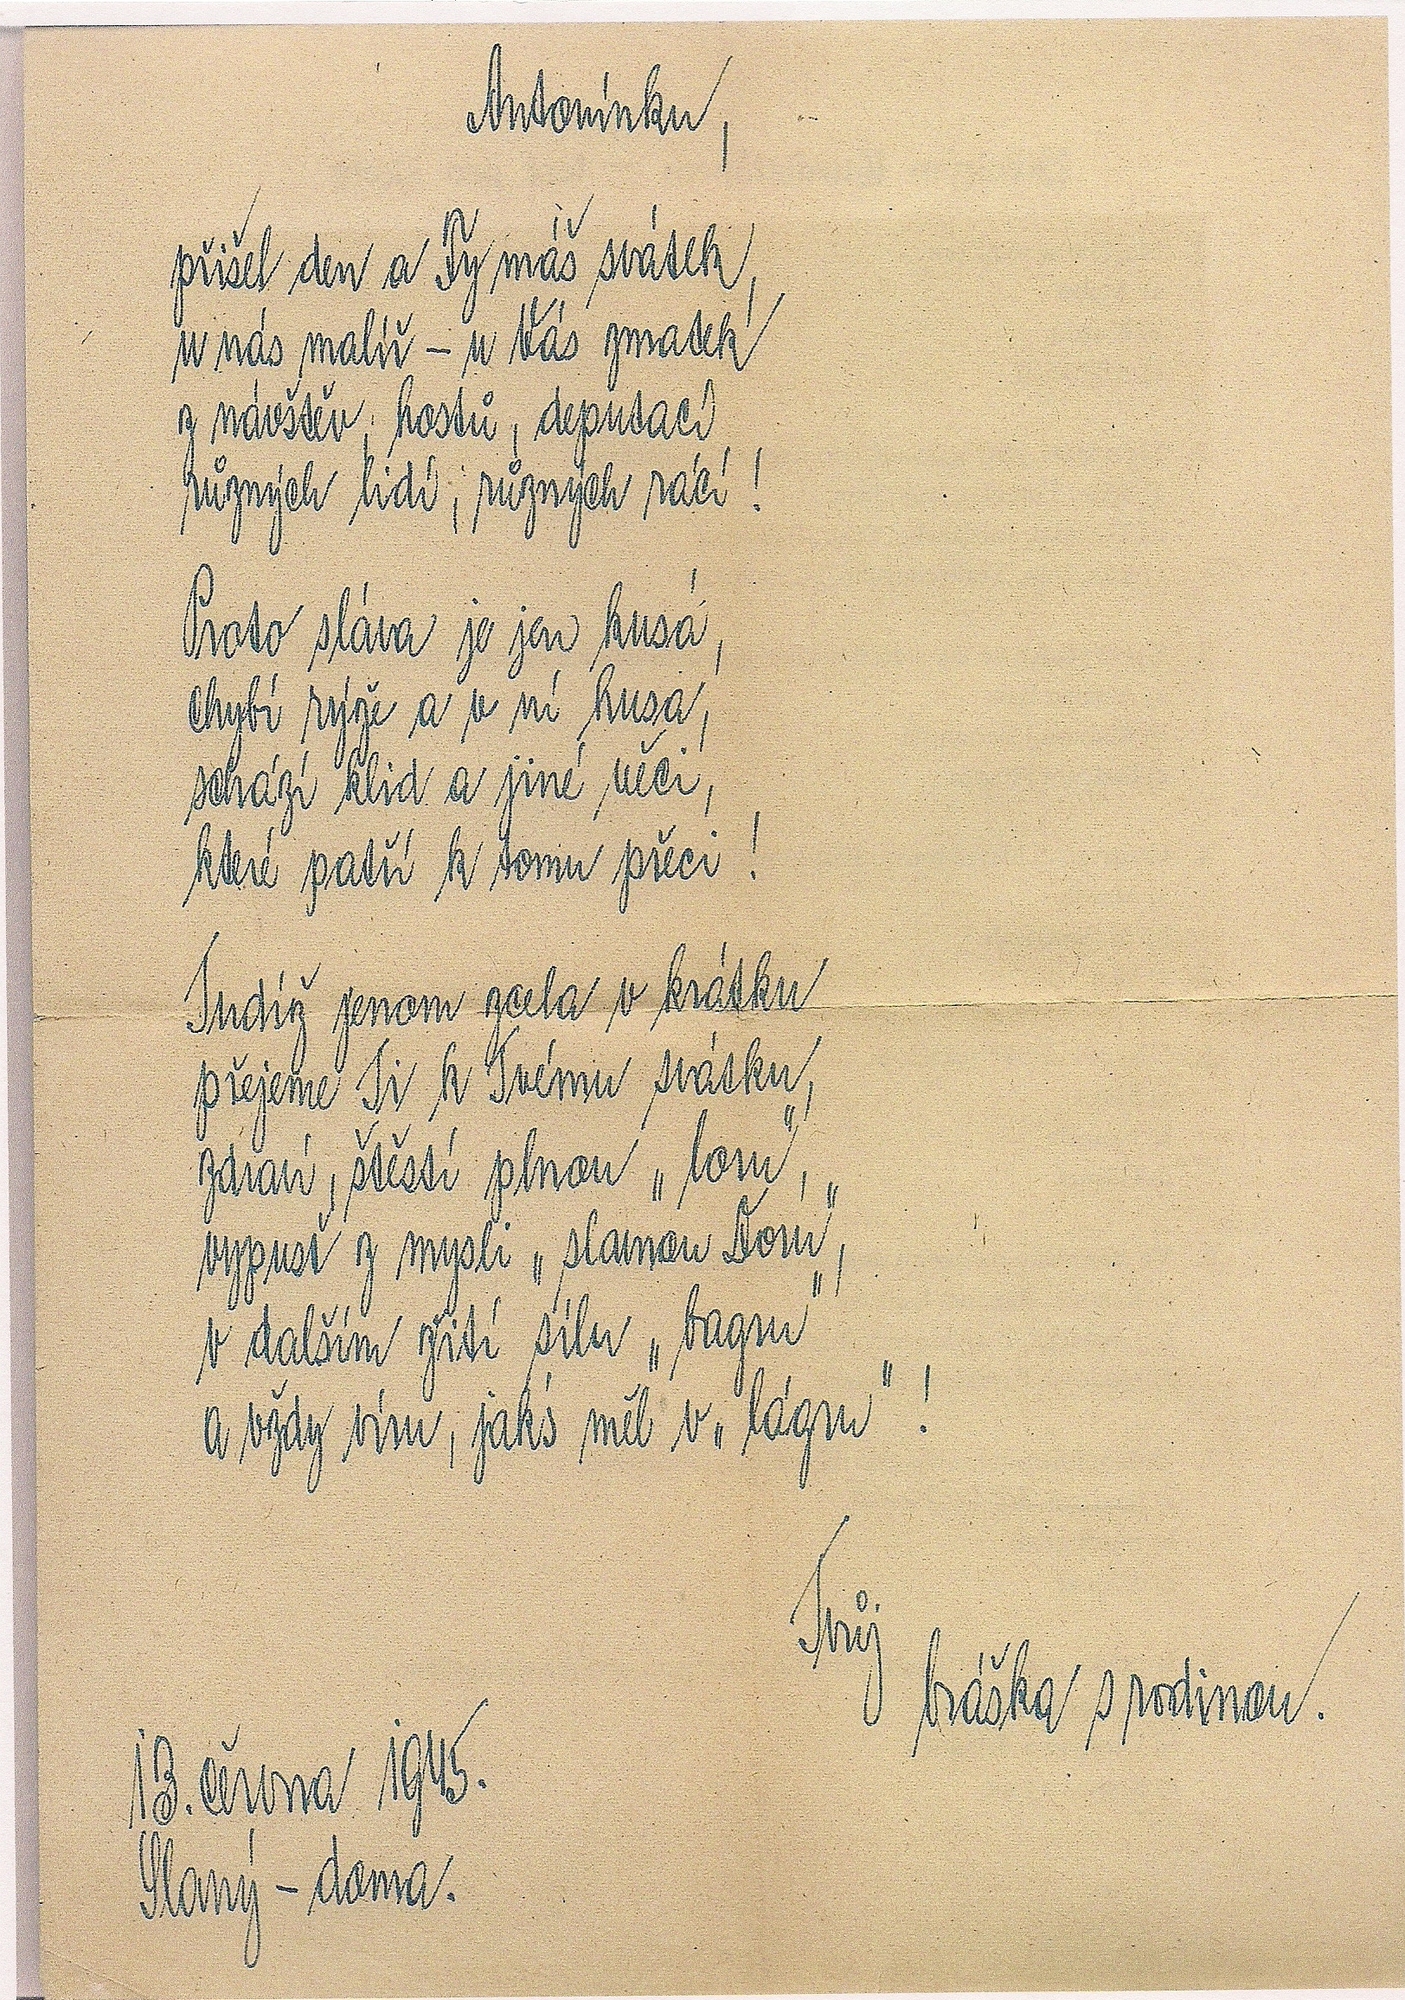 Antonínku,
přišel den a Ty máš svátek,
u nás malíř – u Vás zmatek
z návštěv, hostů, deputací
různých lidí, různých rácí!
Proto sláva je jen kusá,
chybí rýže a v ní husa,
schází klid a jiné věci,
které patří k tomu přeci!
Tudíž jenom zcela v krátku
přejeme Ti k Tvému svátku,
zdraví, štěstí plnou „loru“,
vypusť z mysli „slavnou Doru“,
v dalším žití sílu „bagru“
a vždy víru, jaks měl v „lágru“!
Tvůj
bráška s rodinou.
13. června 1945.
Slaný – doma.